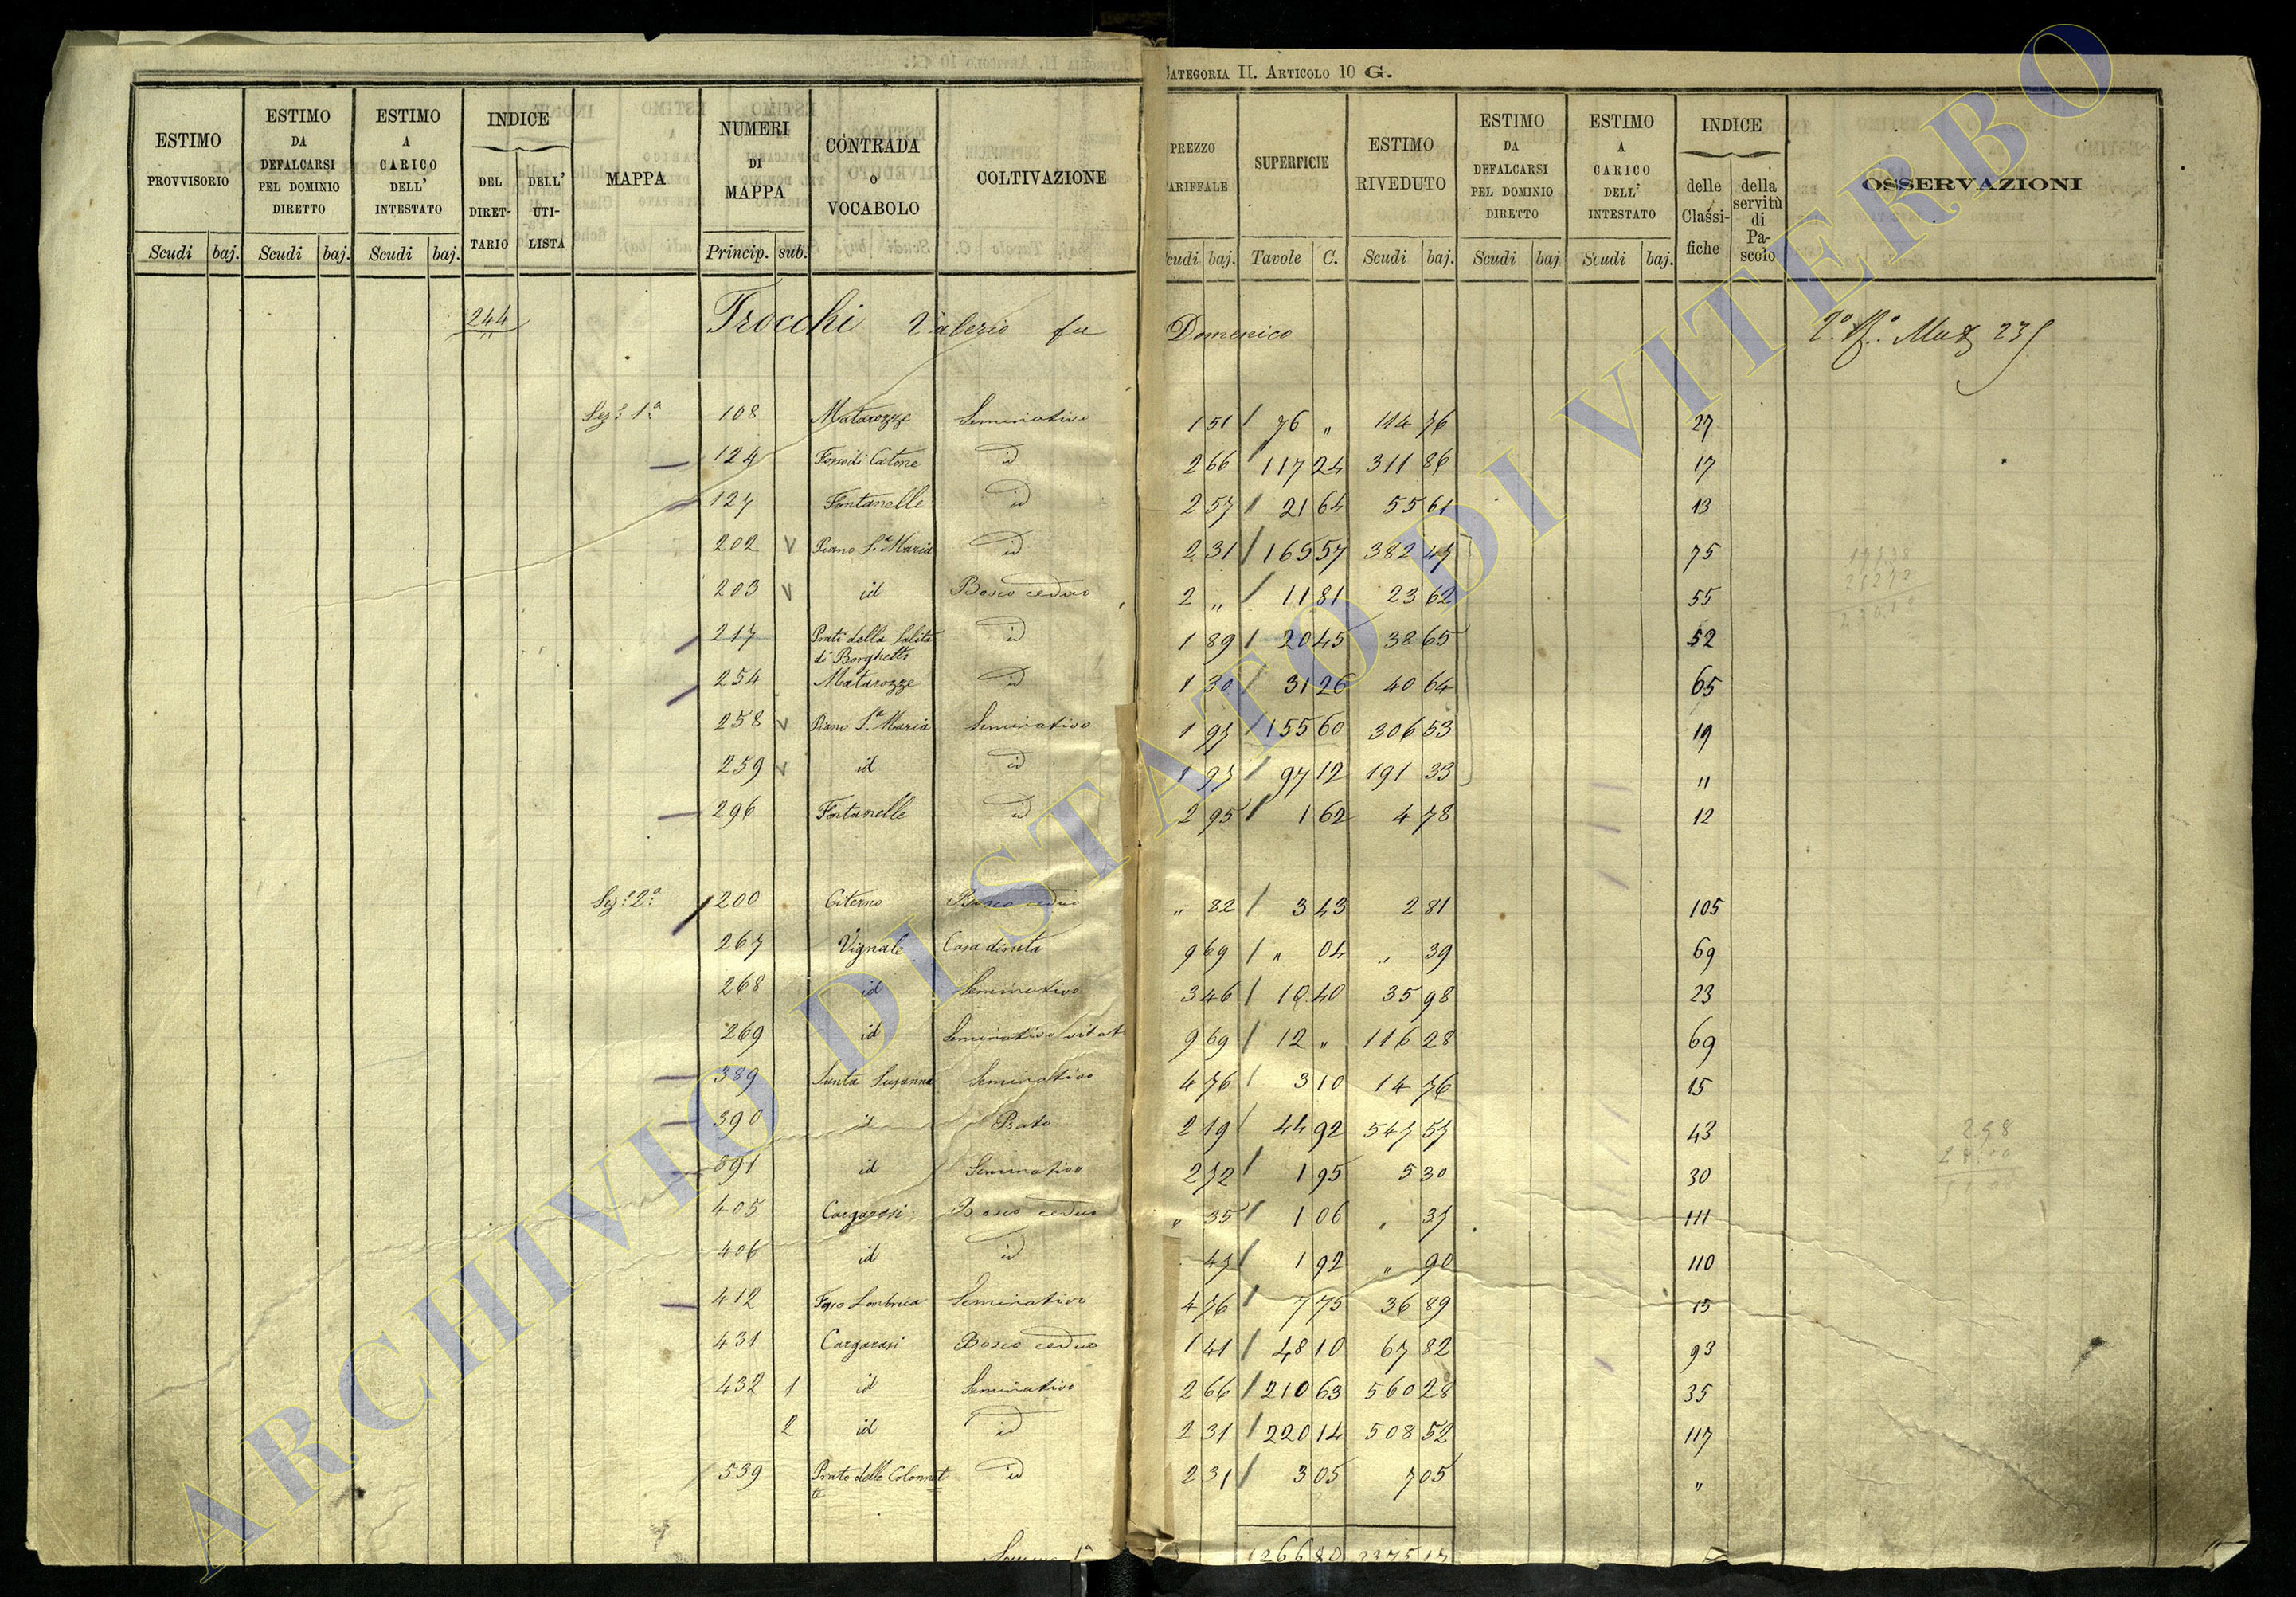 CATEGORIA II. ARTICOLO 10 G.
ESTIMO PROVVISORIO Scudi baj.
ESTIMO DA DEFALCARSI PEL DOMINIO DIRETTO Scudi baj.
ESTIMO A CARICO DELL' INTESTATO Scudi baj.
INDICE DEL DIRETTARIO DELL' UTILISTA
MAPPA
NUMERI DI MAPPA Princip. sub.
CONTRADA O VOCABOLO
COLTIVAZIONE
PREZZO TARIFFALE Scudi baj.
SUPERFICIE Tavole C.
ESTIMO RIVEDUTO Scudi baj.
ESTIMO DA DEFALCARSI PEL DOMINIO DIRETTO Scudi baj
ESTIMO A CARICO DELL' INTESTATO Scudi baj.
INDICE delle Classifiche della servitù di Pascolo
OSSERVAZIONI
244 Trocchi Valerio fu Domenico
Sez.e 1.a 108 Matarozze Seminativo 1 51 76 " 114 76 27
124 Fosso di Catone id 2 66 117 24 311 86 17
127 Fontanelle id 2 57 21 64 55 61 13
202 Piano S.a Maria id 2 31 165 57 382 47 75
203 id Bosco ceduo 2 " 11 81 23 62 55
217 Prati della Salita di Borghetto id 1 89 20 45 38 65 52
254 Matarozze id 1 30 31 26 40 64 65
258 Piano S.a Maria Seminativo 1 97 155 60 306 53 19
259 id id 1 97 97 12 191 33 "
296 Fontanelle id 2 95 1 62 4 78 12
Sez.e 2.a 200 Citerno Bosco ceduo " 82 3 43 2 81 105
267 Vignale Casa diruta 9 69 " 04 " 39 69
268 id Seminativo 3 46 10 40 35 98 23
269 id Seminativo vitat 9 69 12 " 116 28 69
389 Santa Susanna Seminativo 4 76 3 10 14 76 15
390 id Prato 2 19 44 92 547 57 43
391 id Seminativo 2 72 1 95 5 30 30
405 Cargarasi Bosco ceduo " 35 1 06 " 37 111
406 id id 47 1 92 " 90 110
412 Fosso Seminativo 4 76 7 75 36 89 15
431 Cargarasi Bosco ceduo 1 41 48 10 67 82 93
432 1 id Seminativo 2 66 210 63 560 28 35
2 id id 2 31 220 14 508 52 117
539 Prato delle Colonnette id 2 31 3 05 7 05 "
1266 80 3375 17
ARCHIVIO DI STATO DI VITERBO